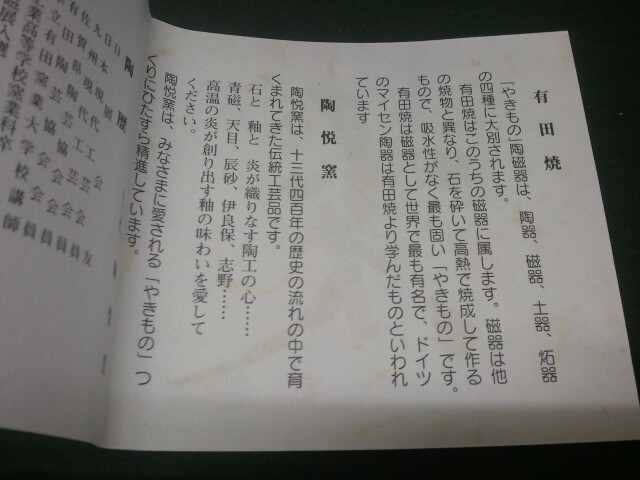 有田焼
「やきもの」陶磁器は、陶器、磁器、土器、炻器
の四種に大別されます。
有田焼はこのうちの磁器に属します。磁器は他
の焼物と異なり、石を砕いて高熱で焼成して作る
もので、吸水性がなく最も固い「やきもの」です。
有田焼は磁器として世界で最も有名で、ドイツ
のマイセン陶器は有田焼より学んだものといわれ
ています
陶悦窯
陶悦窯は、十三代四百年の歴史の流れの中で育
くまれてきた伝統工芸品です。
石と 釉と 炎が織りなす陶工の心……
青磁、天目、辰砂、伊良保、志野……
高温の炎が創り出す釉の味わいを愛して
ください。
陶悦窯は、みなさまに愛される「やきもの」つ
くりにひたすら精進しています。
陶
歴
日本現代工芸会会友
日展会員
九州
佐賀県陶芸協会会員
有田陶芸協会会員
有田窯業大学校講師